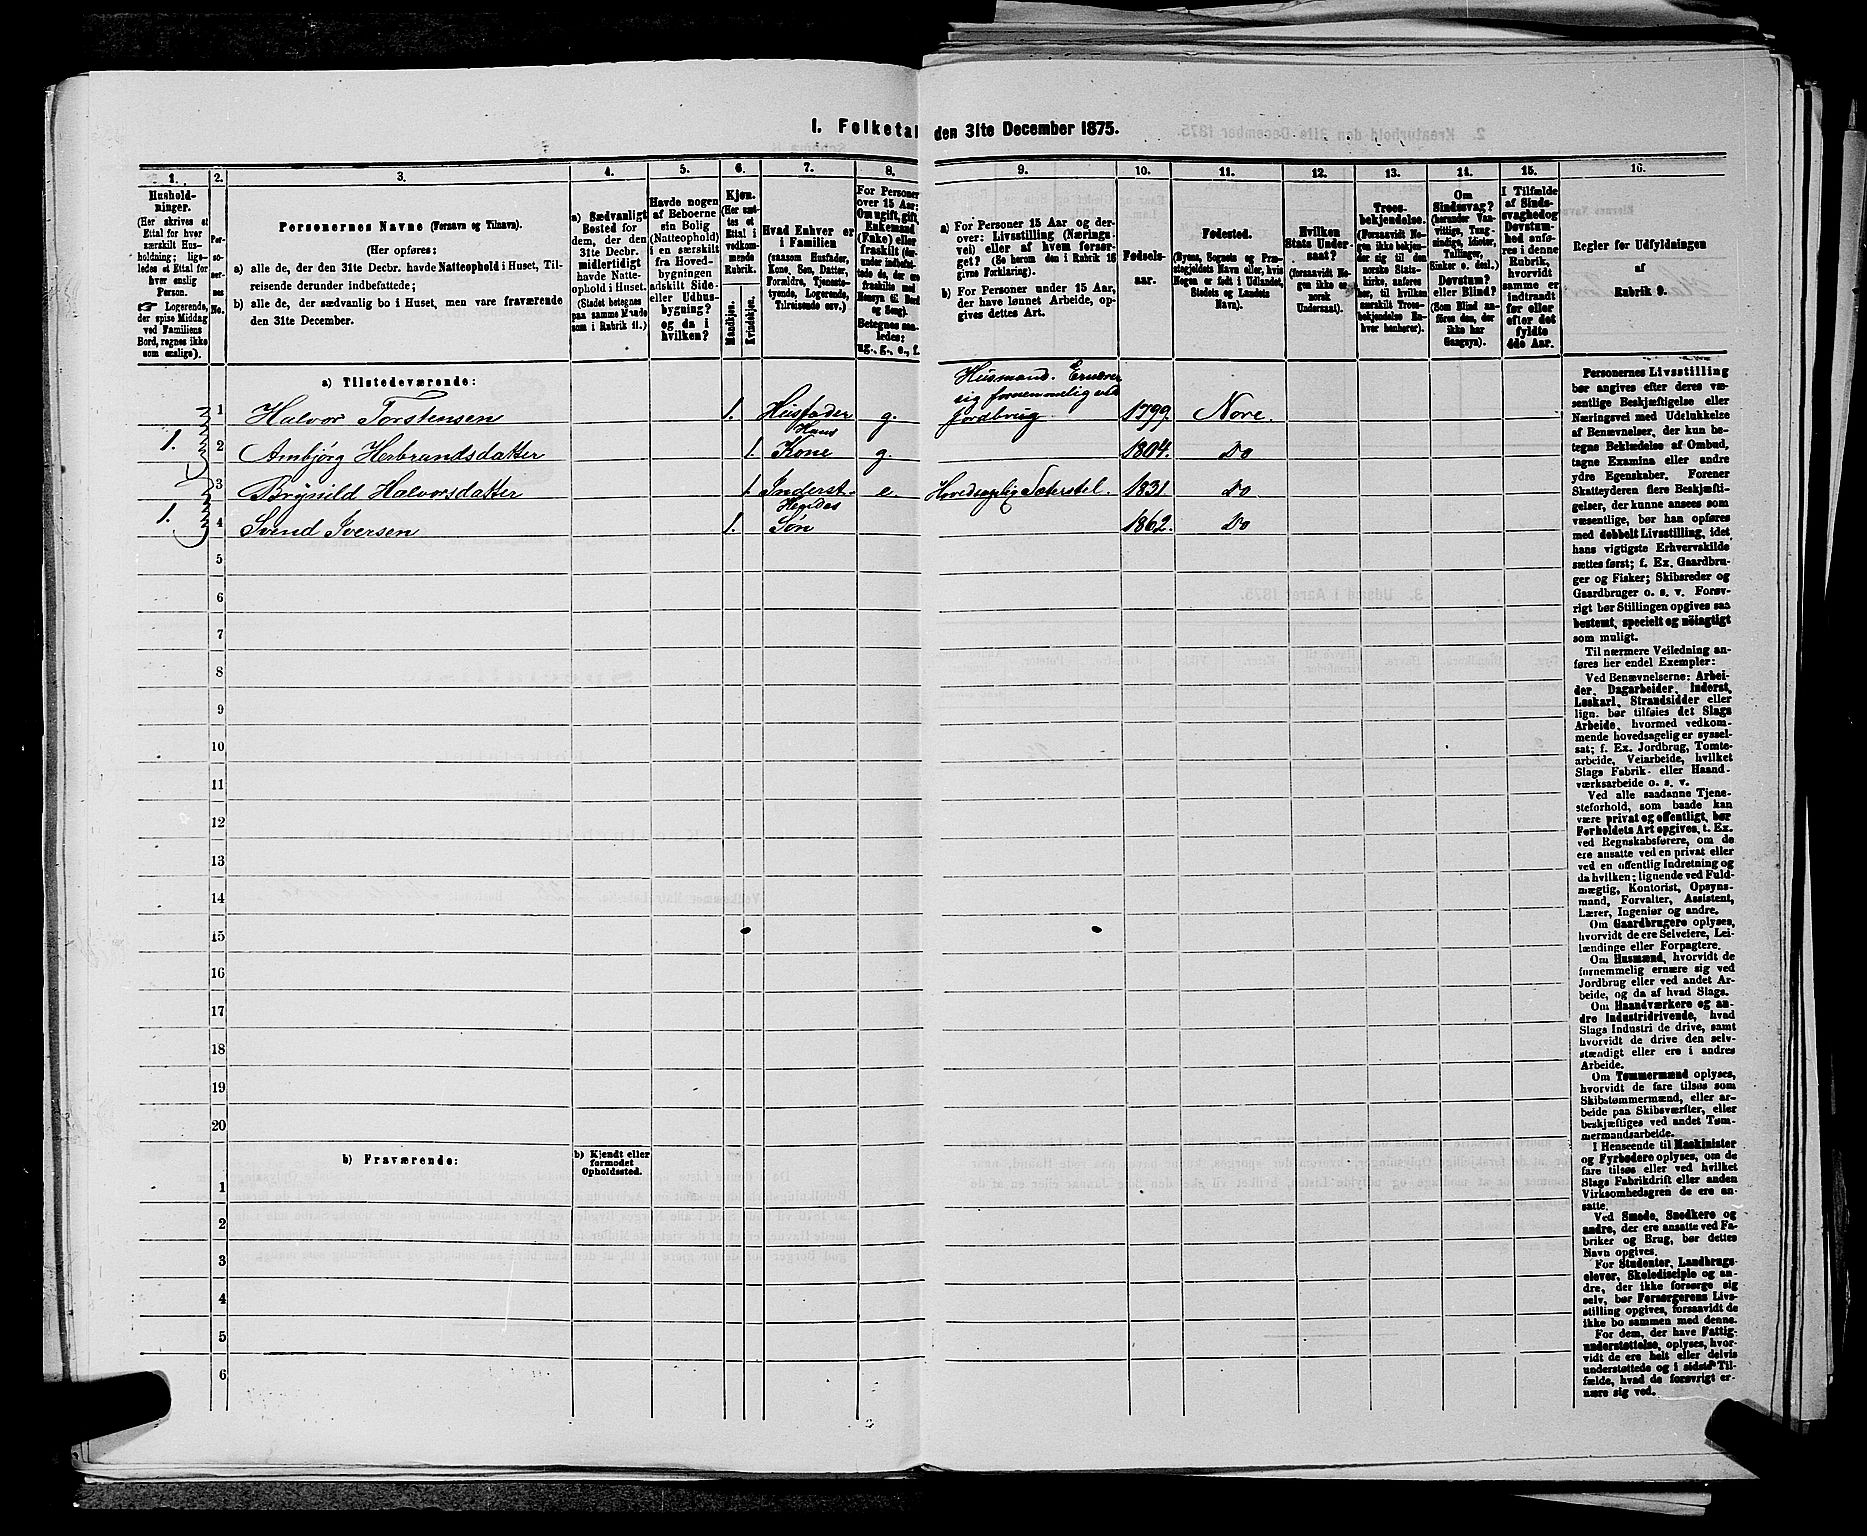 I. Folketal den 31te December 1875.
1.
2.
3.
4.
5.
6.
7.
8.
9.
10.
11.
12.
13.
14.
15.
16.
Hushold-
ninger.
(Her skrives et
Ettal for hver
særskilt Hus-
holdning; lige-
ledes et Ettal for
hver enslig
Person.
☞ Logerende,
der spise Middag
ved Familiens
Bord, regnes ikke
som enslige).
Per-
so-
ner-
nes
No.
Personernes Navne (Fornavn og Tilnavn).
(Her opføres:
a) alle de, der den 31te Decbr. havde Natteophold i Huset, Til-
reisende derunder indbefattede;
b) alle de, der sædvanlig bo i Huset, men vare fraværende
den 31te December.
a) Sædvanligt
Bosted for
dem, der den
31te Decbr.
midlertidigt
havde Natte-
ophold i Huset.
(Stedet betegnes
paa samme Maade
som i Rubrik 11.)
Havde nogen
af Beboerne
sin Bolig
(Natteophold)
i en særskilt
fra Hoved-
bygningen
adskilt Side-
eller Udhus-
bygning?
og da i
hvilken?
Kjøn.
(Her sæt-
tes et
Ettal i
vedkom-
mende
Rubrik.
Mandkjøn.
Kvindekjøn.
Hvad Enhver er
i Familien
(saasom Husfader,
Kone, Søn, Datter,
Forældre, Tjeneste-
tyende, Logerende,
Tilreisende osv.)
For Personer
over 15 Aar:
Om ugift, gift,
Enkemand
(Enke) eller
fraskilt (der-
under indbefat-
tede de, der ere
fraskilte med
Hensyn til Bord
og Seng).
Betegnes saa-
ledes:
ug., g., e., f.
a) For Personer 15 Aar og der-
over: Livsstilling (Nærings-
vei) eller af hvem forsør-
get? (Se herom den i Rubrik 16
givne Forklaring).
b) For Personer under 15 Aar,
der have lønnet Arbeide, op-
gives dettes Art.
Fødsels-
aar.
Fødested.
(Byens, Sognets og Præ-
stegjeldets Navn eller, hvis
Nogen er født i Udlandet,
Stedets og Landets
Navn).
Hvilken
Stats Under-
saat?
(forsaavidt No-
gen ikke er
norsk
Undersaat).
Troes-
bekjendelse.
(Forsaavidt No-
gen ikke bekjen-
der sig til den
norske Stats-
kirke, anføres
her, til hvilken
særskilt Troes-
bekjendelse En-
hver henhører).
Om
Sindssvag?
(herunder Van-
vittige, Tung-
sindige, Idioter,
Tullinger,
Sinker o. desl.)
Døvstum?
eller Blind?
(Som Blind an-
føres den, der
ikke har
Gangsyn).
I Tilfælde
af Sinds-
svaghed og
Døvstum-
hed anfø-
res i denne
Rubrik,
hvorvidt
samme er
indtraadt
før eller
efter det
fyldte
4de Aar.
Regler for Udfyldningen
af
Rubrik 9.
a) Tilstedeværende:
1 Halvor Torstensen 1. Husfader g. Husmand. Ernærer
sig fornemmelig ved
Jordbrug 1799. Nore.
1. 2 Ambjörg Herbrandsdatter 1. Hans
Kone g. 1804. Do
3 Brynild Halvorsdatter 1 Inderst. e. Hovedsagelig Sæterstel. 1831 Do
1. 4 Svend Iversen 1. Hendes
Søn 1862. Do
5
6
7
8
9
10
11
12
13
14
15
16
17
18
19
20
b) Fraværende:
b) Kjendt eller
formodet
Opholdssted.
1
2
3
4
5
6
Personernes Livsstilling
bør angives efter deres væ-
sentlige Beskjæftigelse eller
Næringsvei med Udelukkelse
af Benævnelser, der kun be-
tegne Beklædelse af Ombud,
tagne Examina eller andre
ydre Egenskaber. Forener
Skatteyderen flere Beskjæfti-
gelser, der kunne ansees som
væsentlige, bør han opføres
med dobbelt Livsstilling, idet
hans vigtigste Erhvervskilde
sættes først; f. Ex. Gaardbru-
ger og Fisker; Skibsreder og
Gaardbruger o. s. v. Forøv-
rigt bør Stillingen opgives saa
bestemt, specielt og nöiagtigt
som muligt.
Til nærmere Veiledning an-
føres her endel Exempler:
Ved Benævnelserne: Arbei-
der, Dagarbeider, Inderst,
Løskarl, Strandsidder eller
lign. bør tilføies det Slags
Arbeide, hvormed vedkom-
mende hovedsagelig er syssel-
sat; f. Ex. Jordbrug, Tomte-
arbeide, Veiarbeide, hvilket
Slags Fabrik- eller Haand-
værksarbeide o. s. v.
Ved alle saadanne Tjene-
steforhold, som baade kan
være privat og offentligt, bør
Forholdets Art opgives, t. Ex.
ved Regnskabsførere, om de
ere ansatte ved en privat eller
ved en offentlig Indretning og
da hvilken; lignende ved Fuld-
mægtig, Kontorist, Opsyns-
mand, Forvalter, Assistent,
Lærer, Ingeniør og andre.
Om Gaardbrugere oplyses,
hvorvidt de ere Selveiere, Lei-
lændinge eller Forpagtere.
Om Husmænd, hvorvidt de
fornemmelig ernære sig ved
Jordbrug eller ved andet Ar-
beide, og da af hvad Slags.
Om Haandværkere og an-
dre Industridrivende, hvad
Slags Industri de drive, samt
hvorvidt de drive den selv-
stændigt eller ere i andres
Arbeide.
Om Tømmermænd oplyses,
hvorvidt de fare tilsøs som
Skibstømmermænd, eller ar-
beide paa Skibsværfter, eller
beskjæftiges ved andet Tøm-
mermandsarbeide.
I Henseende til Maskinister
og Fyrbødere oplyses, om de
fare tilsøs eller ved hvilket
Slags Fabrikdrift eller anden
Virksomhedsgren de ere an-
satte.
Ved Smede, Snedkere og
andre, der ere ansatte ved Fa-
briker og Brug, bør dettes
Navn opgives.
For Studenter, Landbrugs-
elever, Skoledisciple og an-
dre, der ikke forsørge sig
selv, bør Forsørgerens Livs-
stilling opgives, forsaavidt de
ikke bo sammen med denne.
For dem, der have Fattig-
understøttelse, oplyses, hvor-
vidt de ere helt eller delvis
understøttede og i sidste Til-
fælde, hvad de forøvrigt er-
nære sig ved.